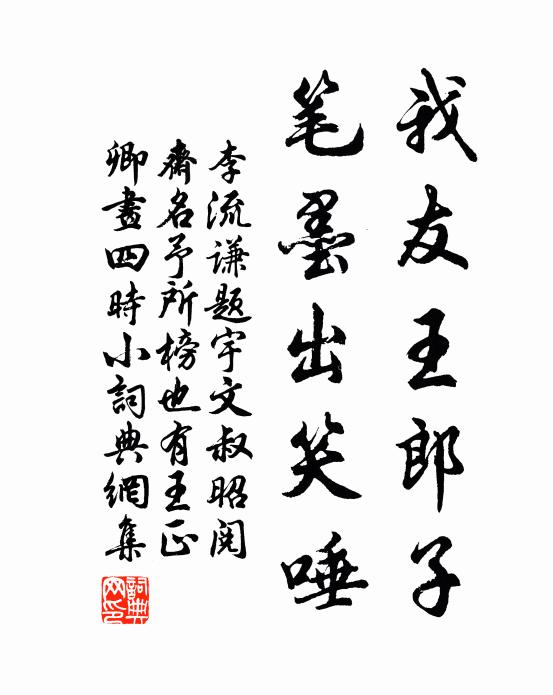 我友王郎子
笔墨出笑唾
李流谦题宇文叔昭阅
斋名予所榜也有王正
卿畫四時小詞典網集
詞典网印